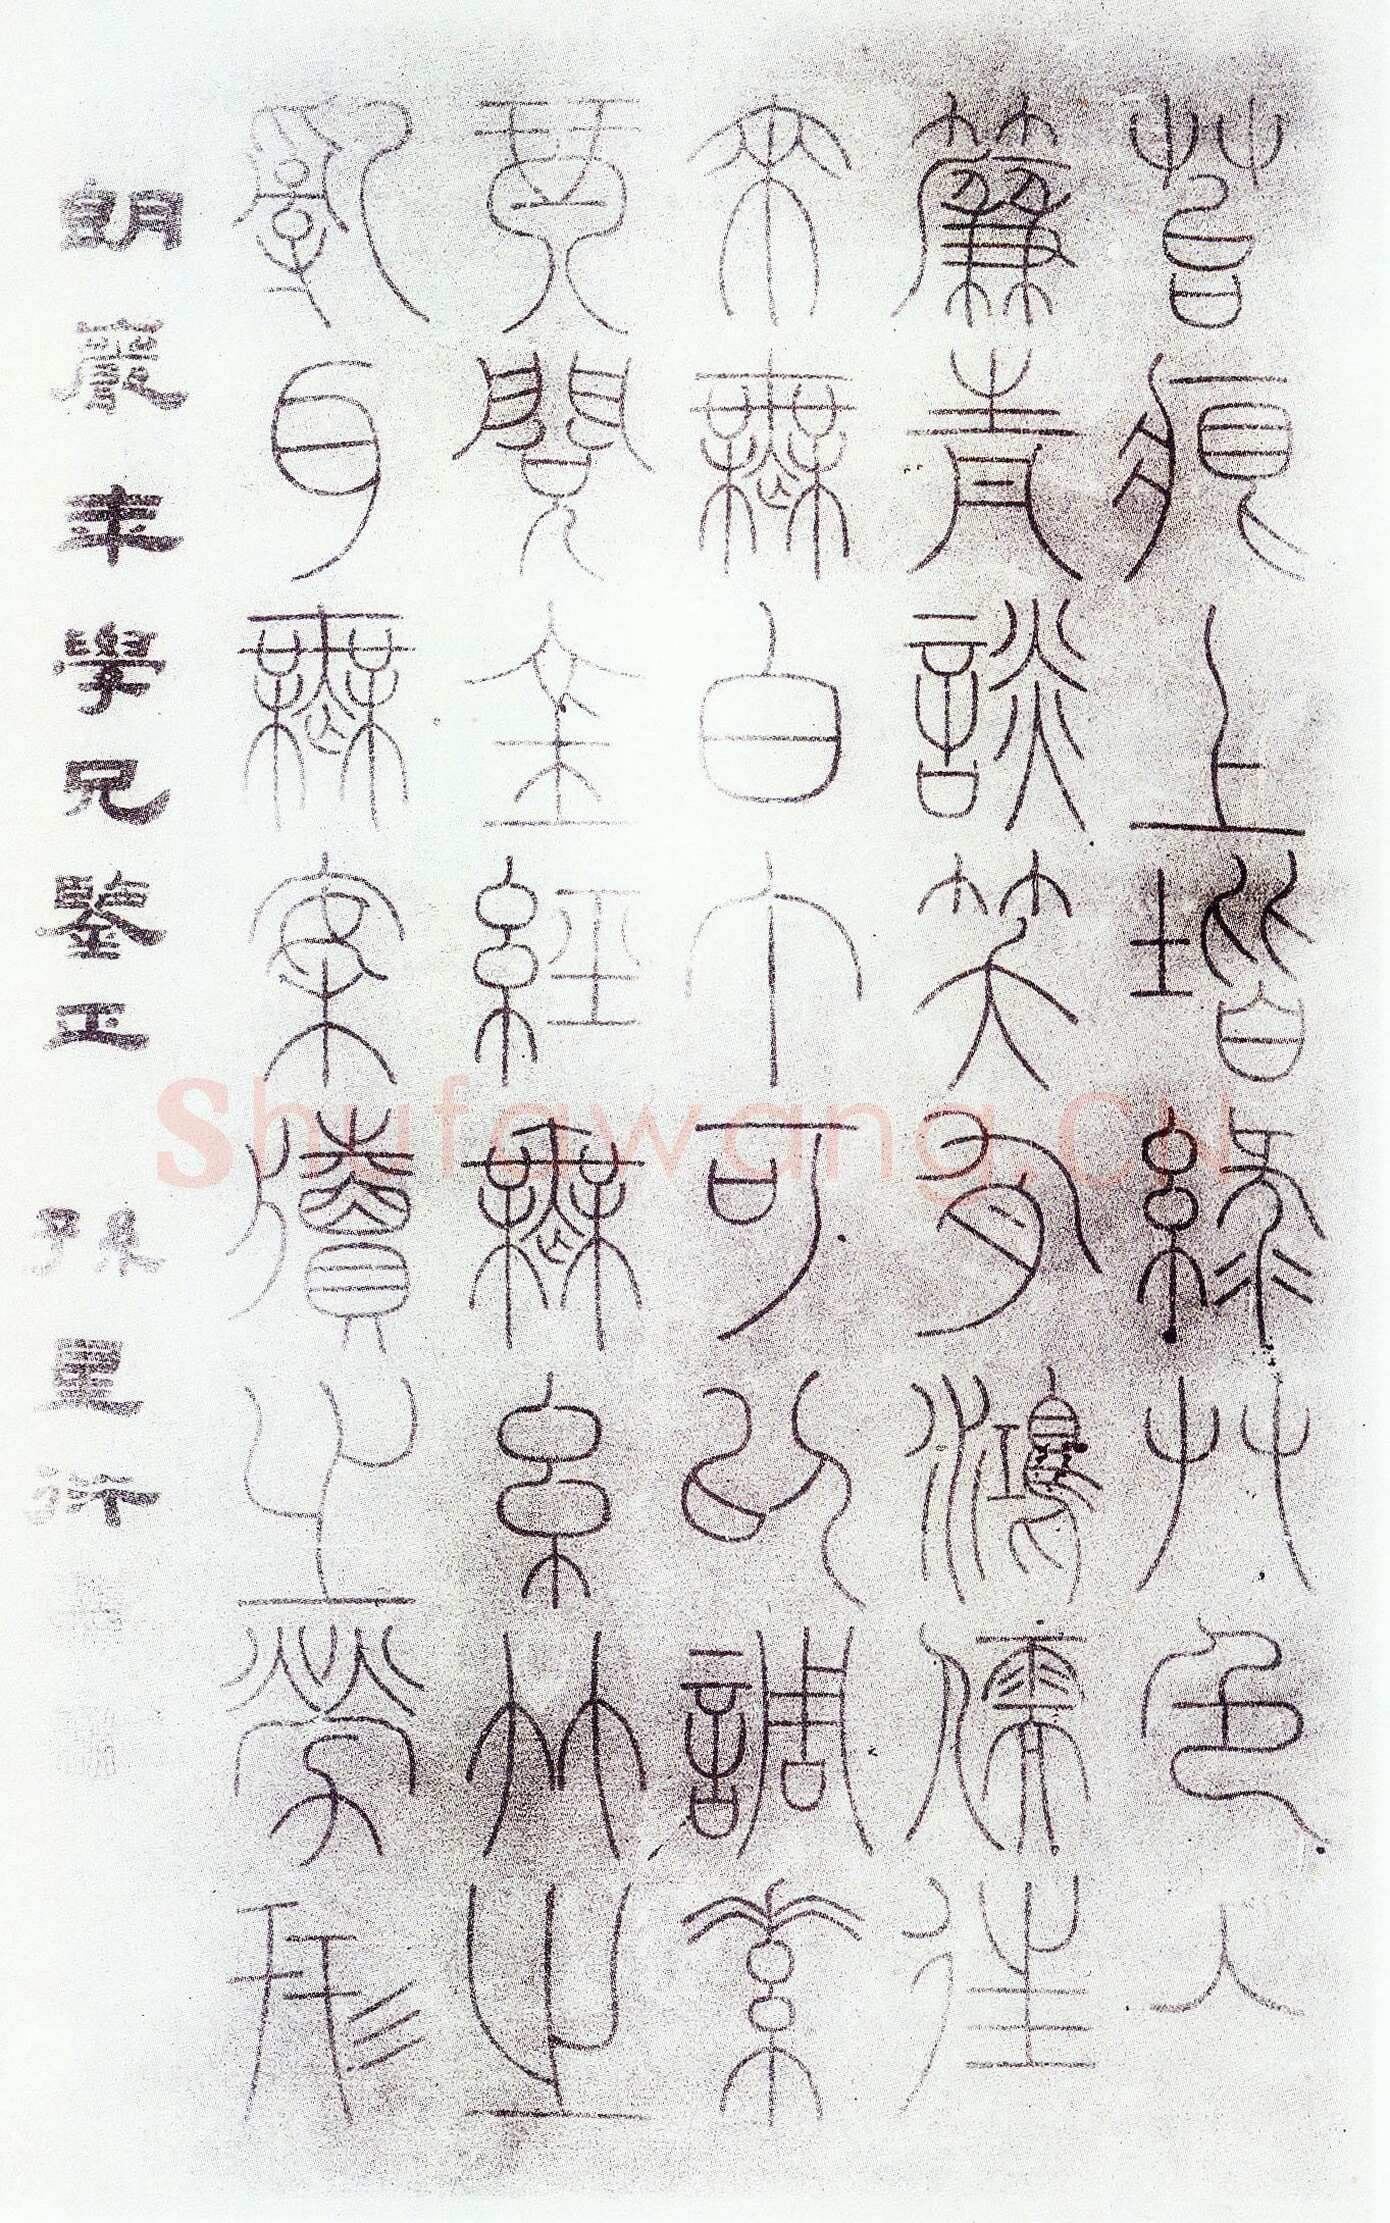 苔痕上階綠艸色入
簾青談笑有鴻儒往
來無白丁可以調素
琴閱金經無糸竹之
亂耳無案牘之勞形
朗巖年學兄鑒正 孫星衍
Shufawang.CN